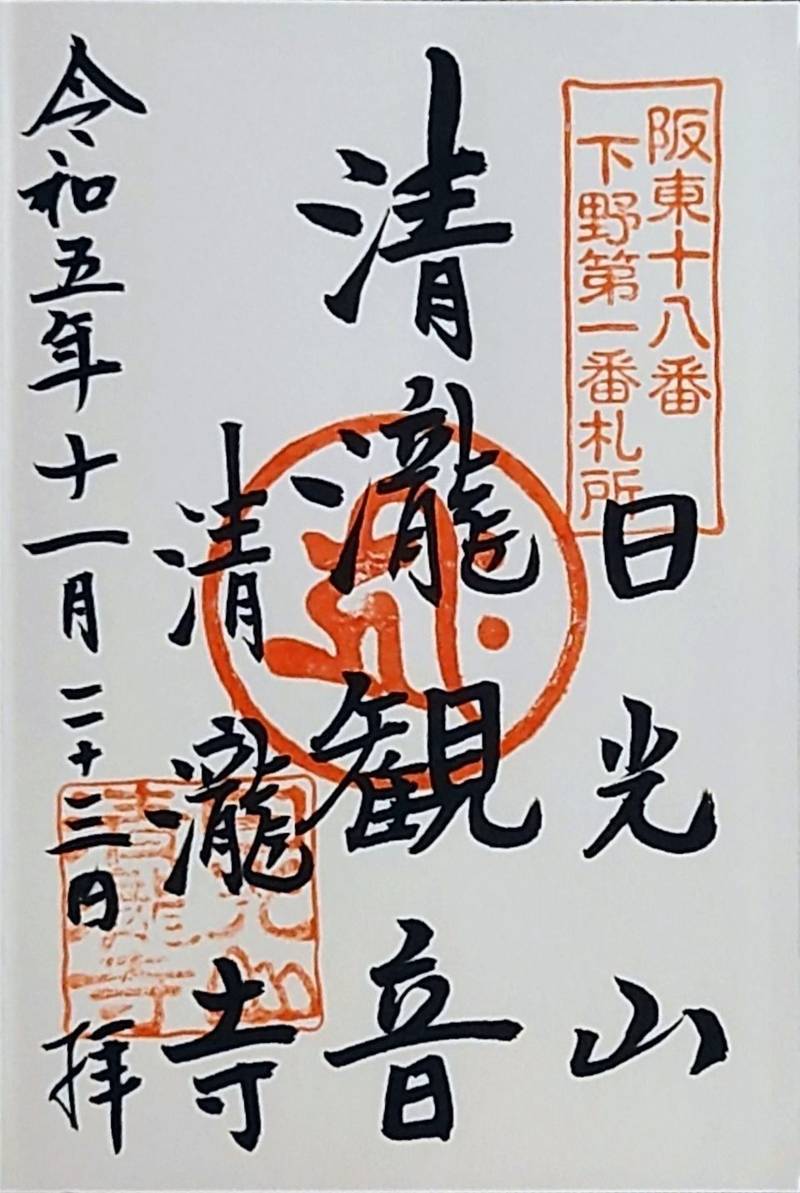 阪東十八番
下野第一番札所
日光山
清瀧観音
清瀧寺
令和五年十一月二十三日
拝